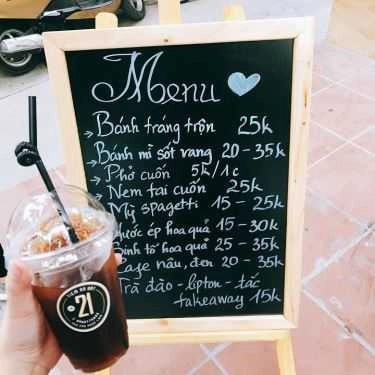 Menu
Bánh tráng trộn 25k
Bánh mì sốt vang 20-35k
Phở cuốn 5k/1c
Nem tai cuốn 25k
Mỳ spagetti 15-25k
Nước ép hoa quả 15-30k
Sinh tố hoa quả 25-35k
Cafe nâu, đen 20-35k
Trà đào - lipton - tắc
takeaway 15k
21